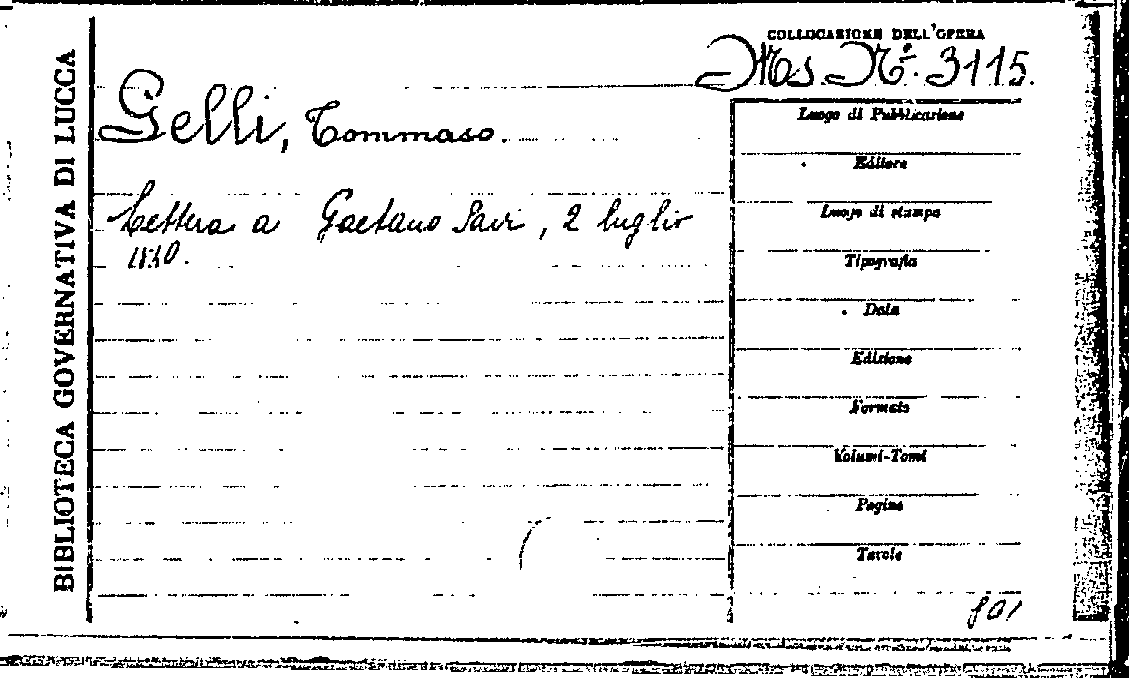 BIBLIOTECA GOVERNATIVA DI LUCCA
COLLOCAZIONE DELL'OPERA
Ms. N.º 3115.
Gelli, Tommaso.
Lettera a Gaetano Savi, 2 luglio
1840.
Luogo di Pubblicazione
Editore
Luogo di stampa
Tipografia
Data
Edizione
Formato
Volumi-Tomi
Pagine
Tavole
801